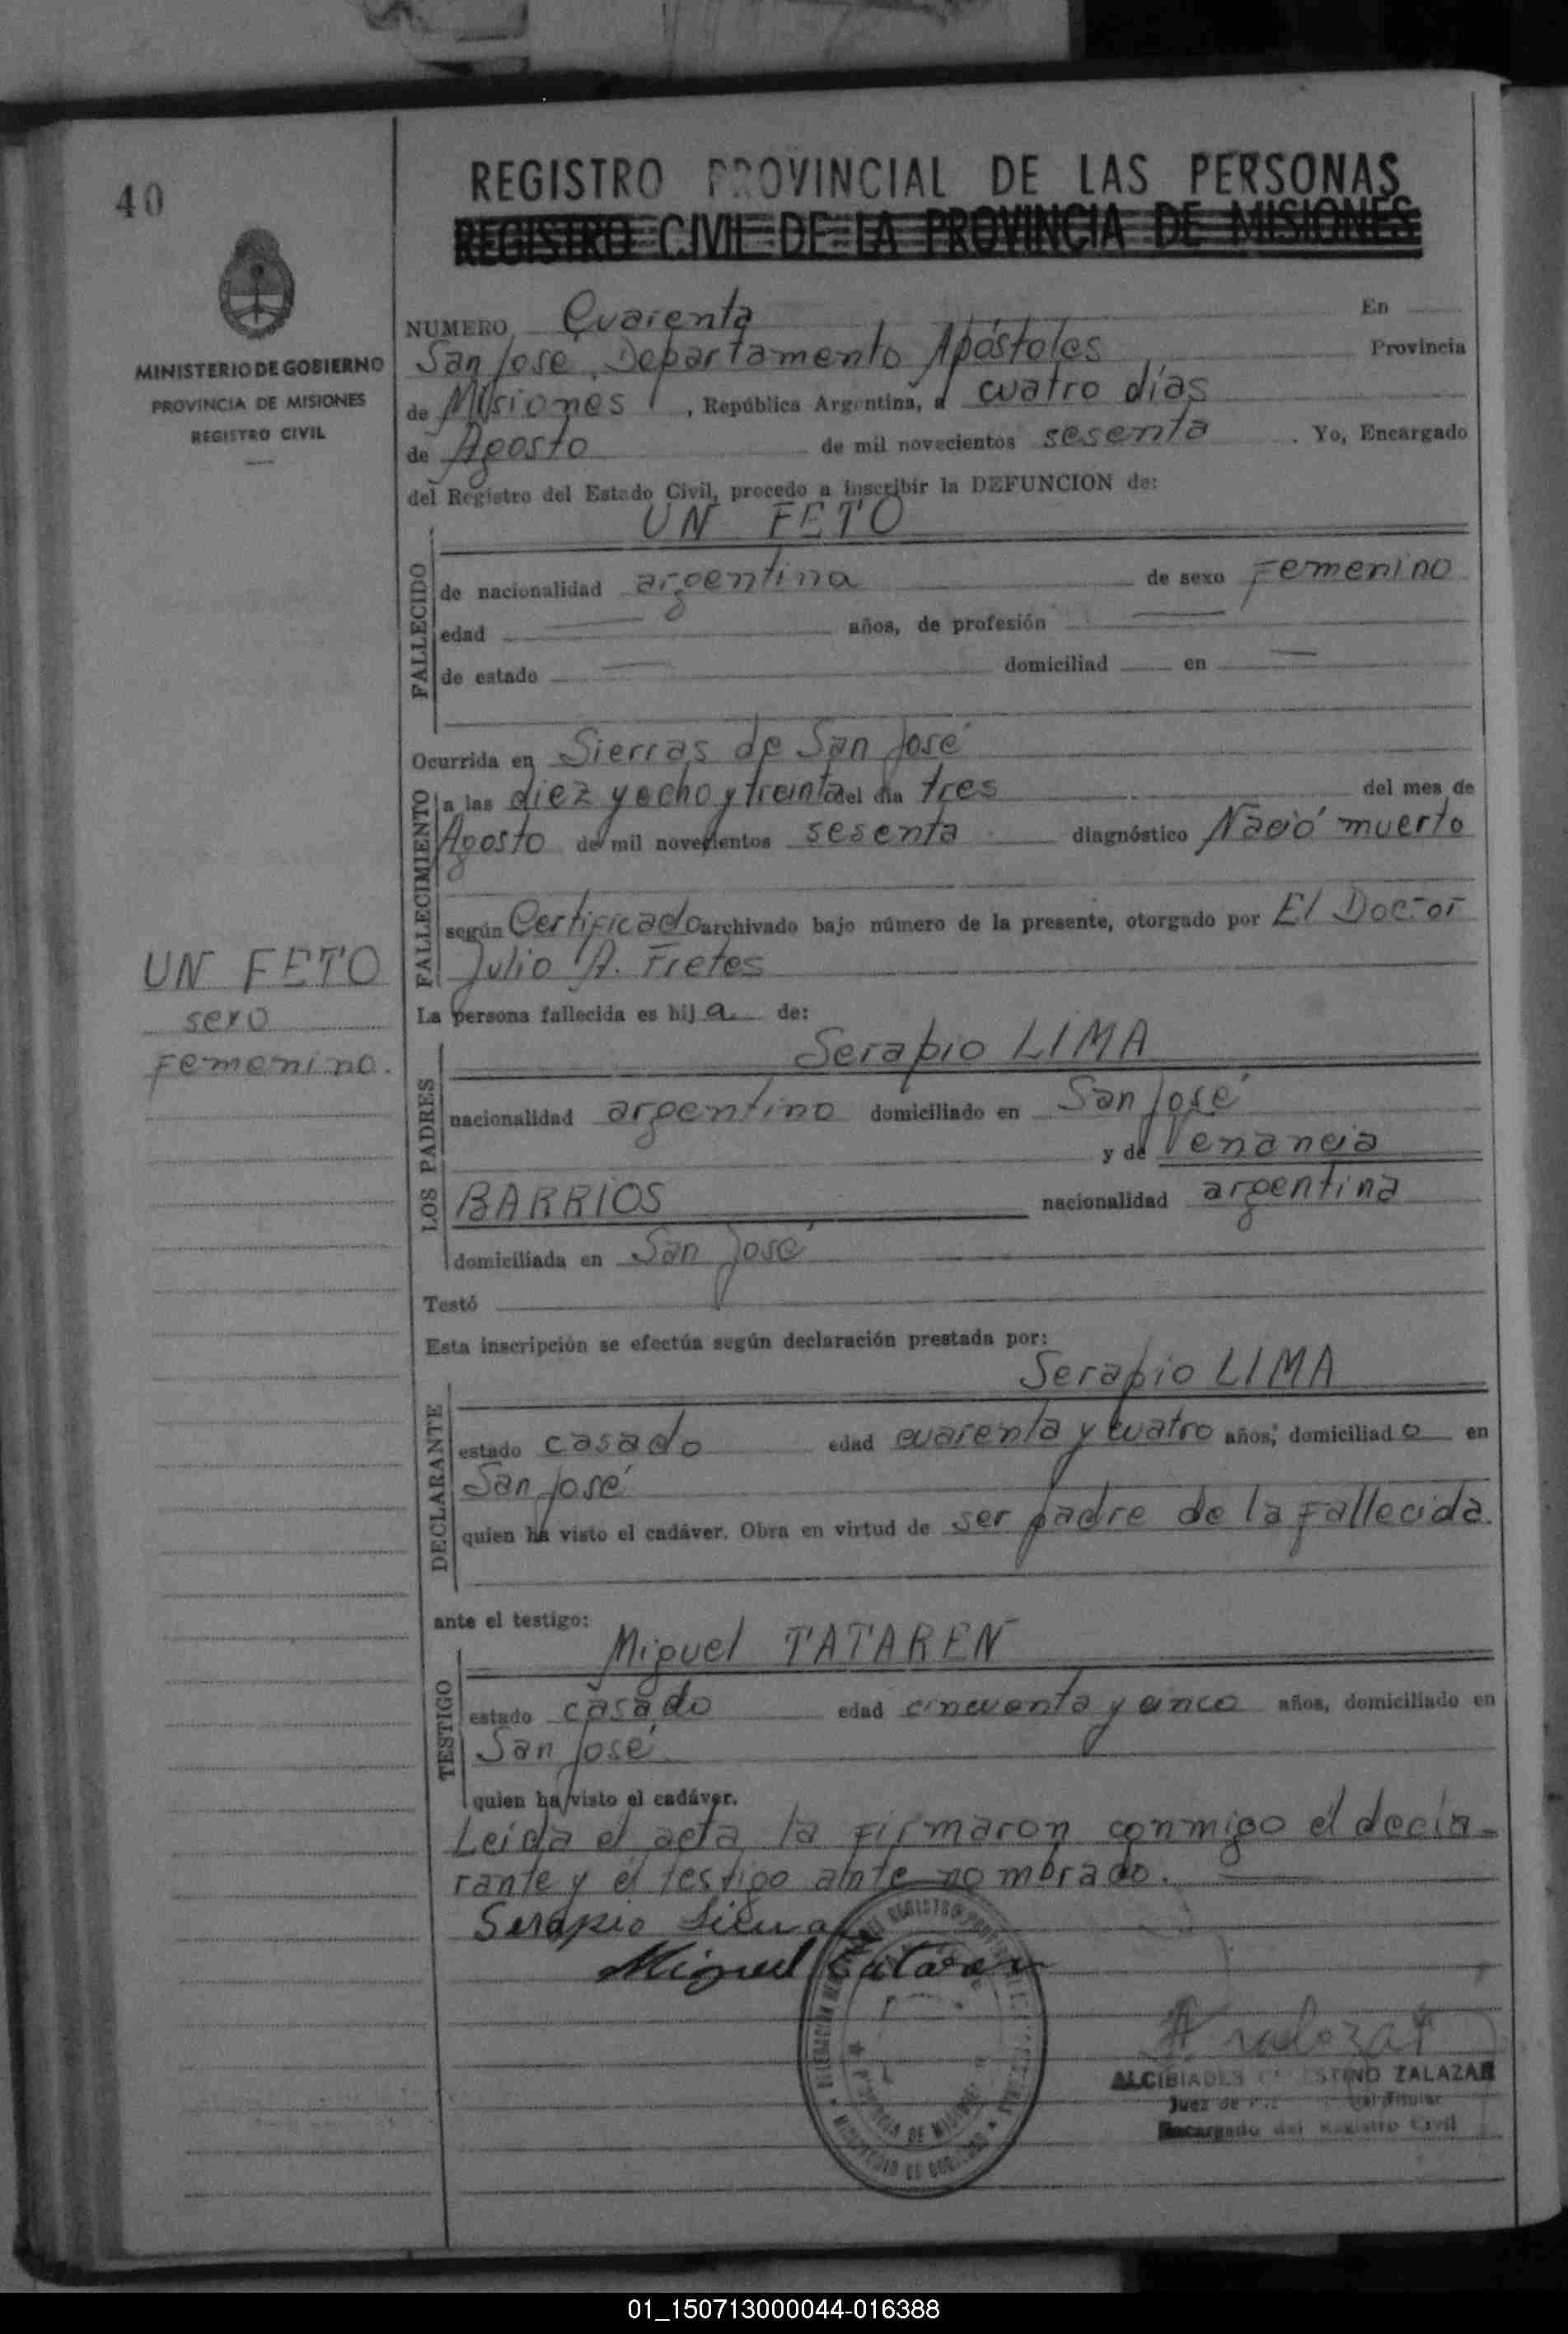 40
MINISTERIO DE GOBIERNO
PROVINCIA DE MISIONES
REGISTRO CIVIL
REGISTRO PROVINCIAL DE LAS PERSONAS
REGISTRO CIVIL DE LA PROVINCIA DE MISIONES
NUMERO Cuarenta En
San José, Departamento Apóstoles Provincia
de Misiones, República Argentina, a cuatro días
de Agosto de mil novecientos sesenta. Yo, Encargado
del Registro del Estado Civil, procedo a inscribir la DEFUNCION de:
UN FETO
FALLECIDO
de nacionalidad argentina de sexo Femenino
edad — años, de profesión —
de estado — domiciliad en —
Ocurrida en Sierras de San José
FALLECIMIENTO
a las diez y ocho y treinta del día tres del mes de
Agosto de mil novecientos sesenta diagnóstico Nació muerto
según Certificado archivado bajo número de la presente, otorgado por El Doctor
Julio A. Fretes
UN FETO
sexo
Femenino.
La persona fallecida es hija de:
LOS PADRES
Serapio LIMA
nacionalidad argentino domiciliado en San José
y de Venancia
BARRIOS nacionalidad argentina
domiciliada en San José
Testó
Esta inscripción se efectúa según declaración prestada por:
DECLARANTE
Serapio LIMA
estado casado edad cuarenta y cuatro años; domiciliado en
San José
quien ha visto el cadáver. Obra en virtud de ser padre de la Fallecida.
ante el testigo:
TESTIGO
Miguel TATAREN
estado casado edad cincuenta y cinco años, domiciliado en
San José
quien ha visto el cadáver.
Leída el acta, la Firmaron conmigo el decla-
rante y el testigo ante nombrado.
Serapio Lima
Miguel Tataren
ZALAZAR
Juez de
Titular
Encargado del Registro Civil
01_150713000044-016388